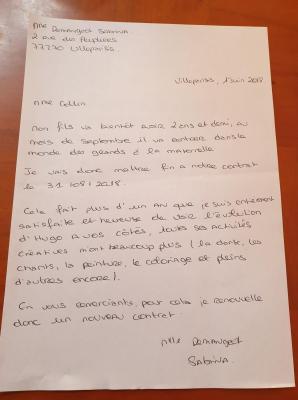 Mme Demangeot Sabrina
2 ave des Peupliers
77270 Villeparisis
Villeparisis, 1 juin 2018
Mme Collin
Mon fils va bientôt avoir 2 ans et demi, au
mois de septembre il va rentrer dans le
monde des grands à la maternelle
Je vais donc mettre fin a notre contrat
le 31/08/2018.
Cela fait plus d'un an que je suis entièrement
satisfaite et heureuse de voir l'évolution
d'Hugo a vos côtés, toutes ses activités
créatives m'ont beaucoup plus (la danse, les
chants, la peinture, le coloriage et pleins
d'autres encore).
En vous remerciants, pour cela je renouvelle
donc un nouveau contrat.
Mme Demangeot
Sabrina.